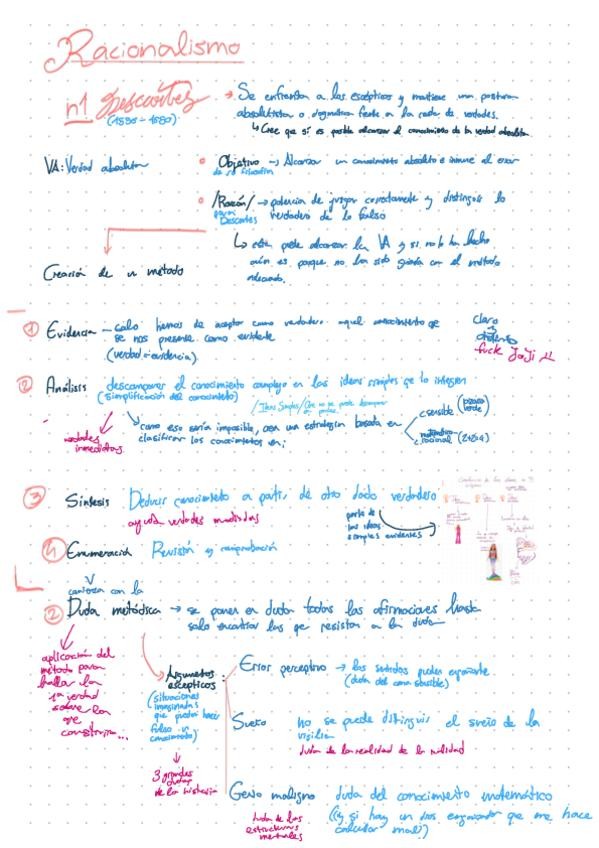 Racionalismo
n1 Descartes
→ Se enfrentan a los escépticos y mantiene una postura
absolutista o dogmática frente a la caída de verdades.
↳ Cree que sí es posible alcanzar el conocimiento de la verdad absoluta
VA: Verdad absoluta
Objetivo → Alcanzar un conocimiento absoluto e inmune al error
de su filosofía
/Razón/ → potencia de juzgar correctamente y distinguir lo
para
Descartes
verdadero de lo falso
↳ esta puede alcanzar la VA y si no lo ha hecho
aún es porque no ha sido guiada con el método
adecuado.
Creación de un método
① Evidencia – solo hemos de aceptar como verdadero aquel conocimiento qe
se nos presente como evidente
(verdad = evidencia)
claro
y
distinto
fuck JoJi
② Análisis descomponer el conocimiento complejo en las ideas simples qe lo integren
(Simplificación del conocimiento)
/Ideas Simples/ Que no se puede descomponer
en partes
verdades
inmediatas
como eso sería imposible, crea una estrategia basada en
clasificar los conocimientos en;
sensible (pizarra verde)
matemático
racional (2+2=4)
③ Síntesis Deducir conocimiento a partir de otro dado verdadero
ayuda verdades mediatas
parte de
las ideas
simples evidentes
④ Enumeración Revisión y comprobación
comienza con la
② Duda metódica → se ponen en duda todas las afirmaciones hasta
solo encontrar las qe resistan a la duda
aplicación del
método para
hallar la
1ª verdad
sobre la
qe
construir...
Argumentos
escépticos
(situaciones
imaginadas
que puedan hacer
falso un
conocimiento)
3 grandes
dudas
de la historia
Error perceptivo → los sentidos pueden engañarte
(duda del cono sensible)
Sueño no se puede distinguir el sueño de la
vigilia
duda de la realidad de la realidad
Genio maligno duda del conocimiento matemático
(¿y si hay un dios engañador que me hace
calcular mal?)
duda de las
estructuras
mentales